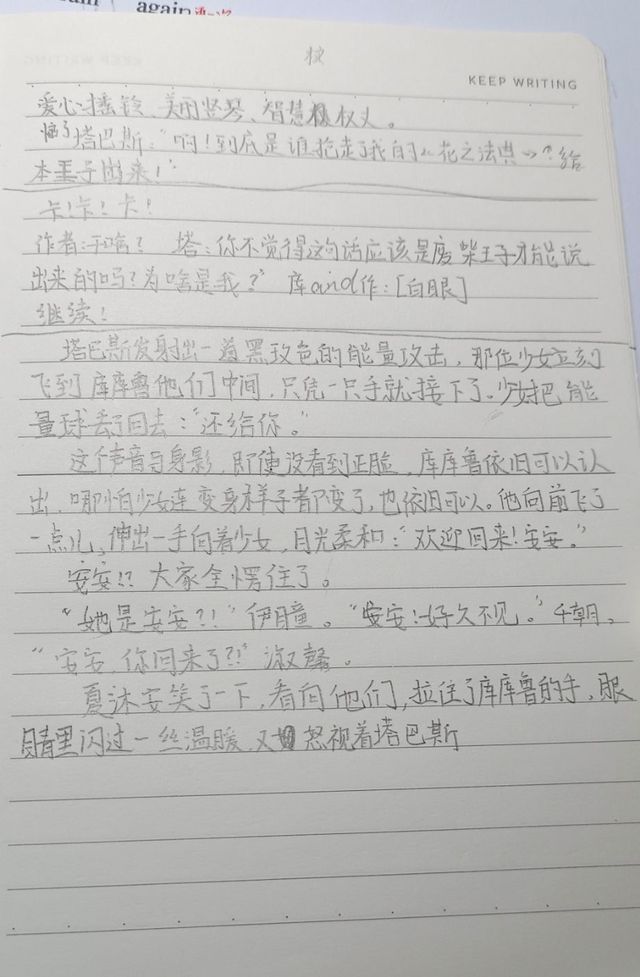 again
KEEP WRITING
爱心摇铃、美丽竖琴、智慧权杖。
恼了塔巴斯：“啊！到底是谁抢走了我的《花之法典》？给
本王子出来！”
卡！卡！卡！
作者：干啥？ 塔：你不觉得这句话应该是废柴王子才能说
出来的吗？为啥是我？” 库and作：[白眼]
继续！
塔巴斯发射出一道黑玫色的能量攻击，那位少女立刻
飞到库库鲁他们中间，只凭一只手就接下了。少女把能
量球丢了回去：“还给你。”
这个声音与身影，即使没看到正脸，库库鲁依旧可以认
出，哪怕少女连变身样子都变了，也依旧可以。他向前飞了
一点儿，伸出一手向着少女，目光柔和：“欢迎回来！安安。”
安安!? 大家全愣住了。
“她是安安？！”伊瞳。“安安！好久不见。”千朝。
“安安，你回来了?!”淑馨。
夏沐安笑了一下，看向他们，拉住了库库鲁的手，眼
睛里闪过一丝温暖，又怒视着塔巴斯